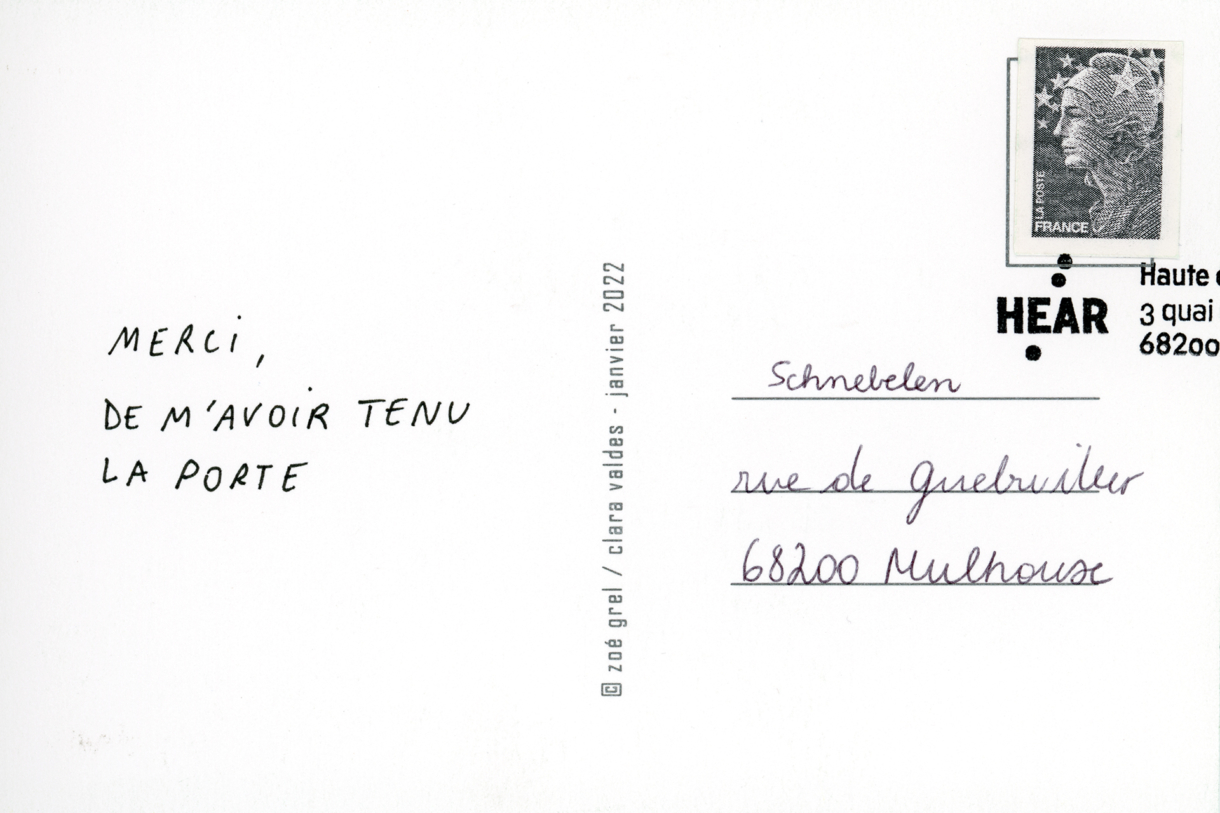 MERCI,
DE M'AVOIR TENU
LA PORTE
© zoé grel / clara valdes - janvier 2022
LA POSTE
FRANCE
HEAR
Haute
3 quai
68200
Schnebelen
rue de Guebwiller
68200 Mulhouse